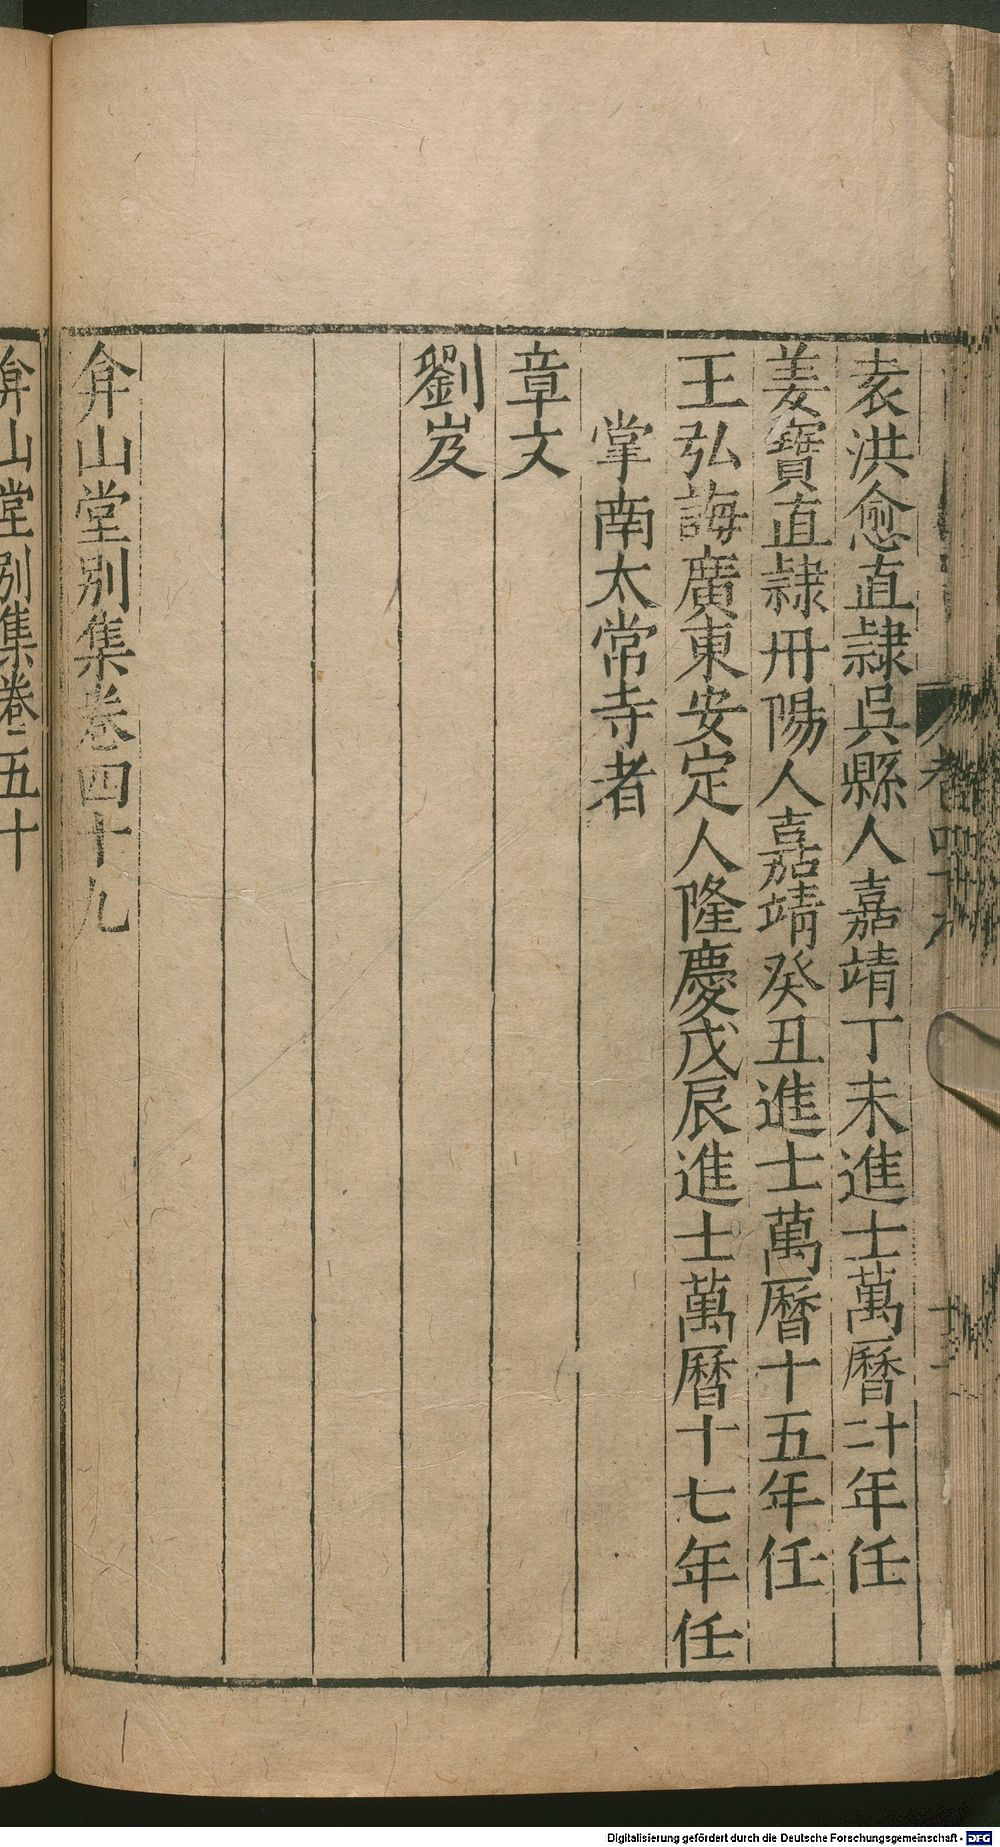 袁洪愈直隸吳縣人嘉靖丁未進士萬曆二十年任
姜寶直隸丹陽人嘉靖癸丑進士萬曆十五年任
王弘誨廣東安定人隆慶戊辰進士萬曆十七年任
掌南太常寺者
章文
劉岌
弇山堂別集卷四十九
弇山堂別集卷五十
Digitalisierung gefördert durch die Deutsche Forschungsgemeinschaft - DFG